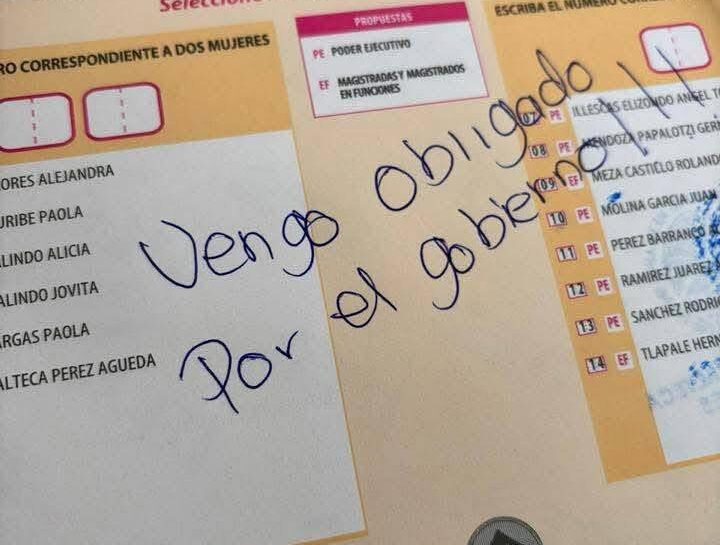 PROPUESTAS
PE PODER EJECUTIVO
EF MAGISTRADAS Y MAGISTRADOS
EN FUNCIONES
CORRESPONDIENTE A DOS MUJERES
ALEJANDRA
URIBE PAOLA
ALICIA
JOVITA
PAOLA
PEREZ AGUEDA
ESCRIBA EL NUMERO
07 PE ILLESCAS ELIZONDO ANGEL
08 PE MENDOZA PAPALOTZI
09 EF MEZA CASTILLO
10 PE MOLINA GARCIA JUAN
11 PE PEREZ BARRANCO
12 PE RAMIREZ JUAREZ
13 PE SANCHEZ
14 EF TLAPALE
Vengo obligado
Por el gobierno!!!